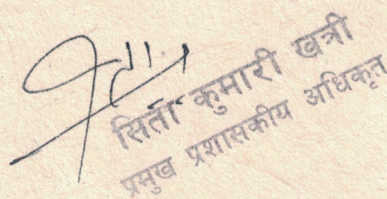 सिर्ता कुमारी खत्री
प्रमुख प्रशासकीय अधिकृत